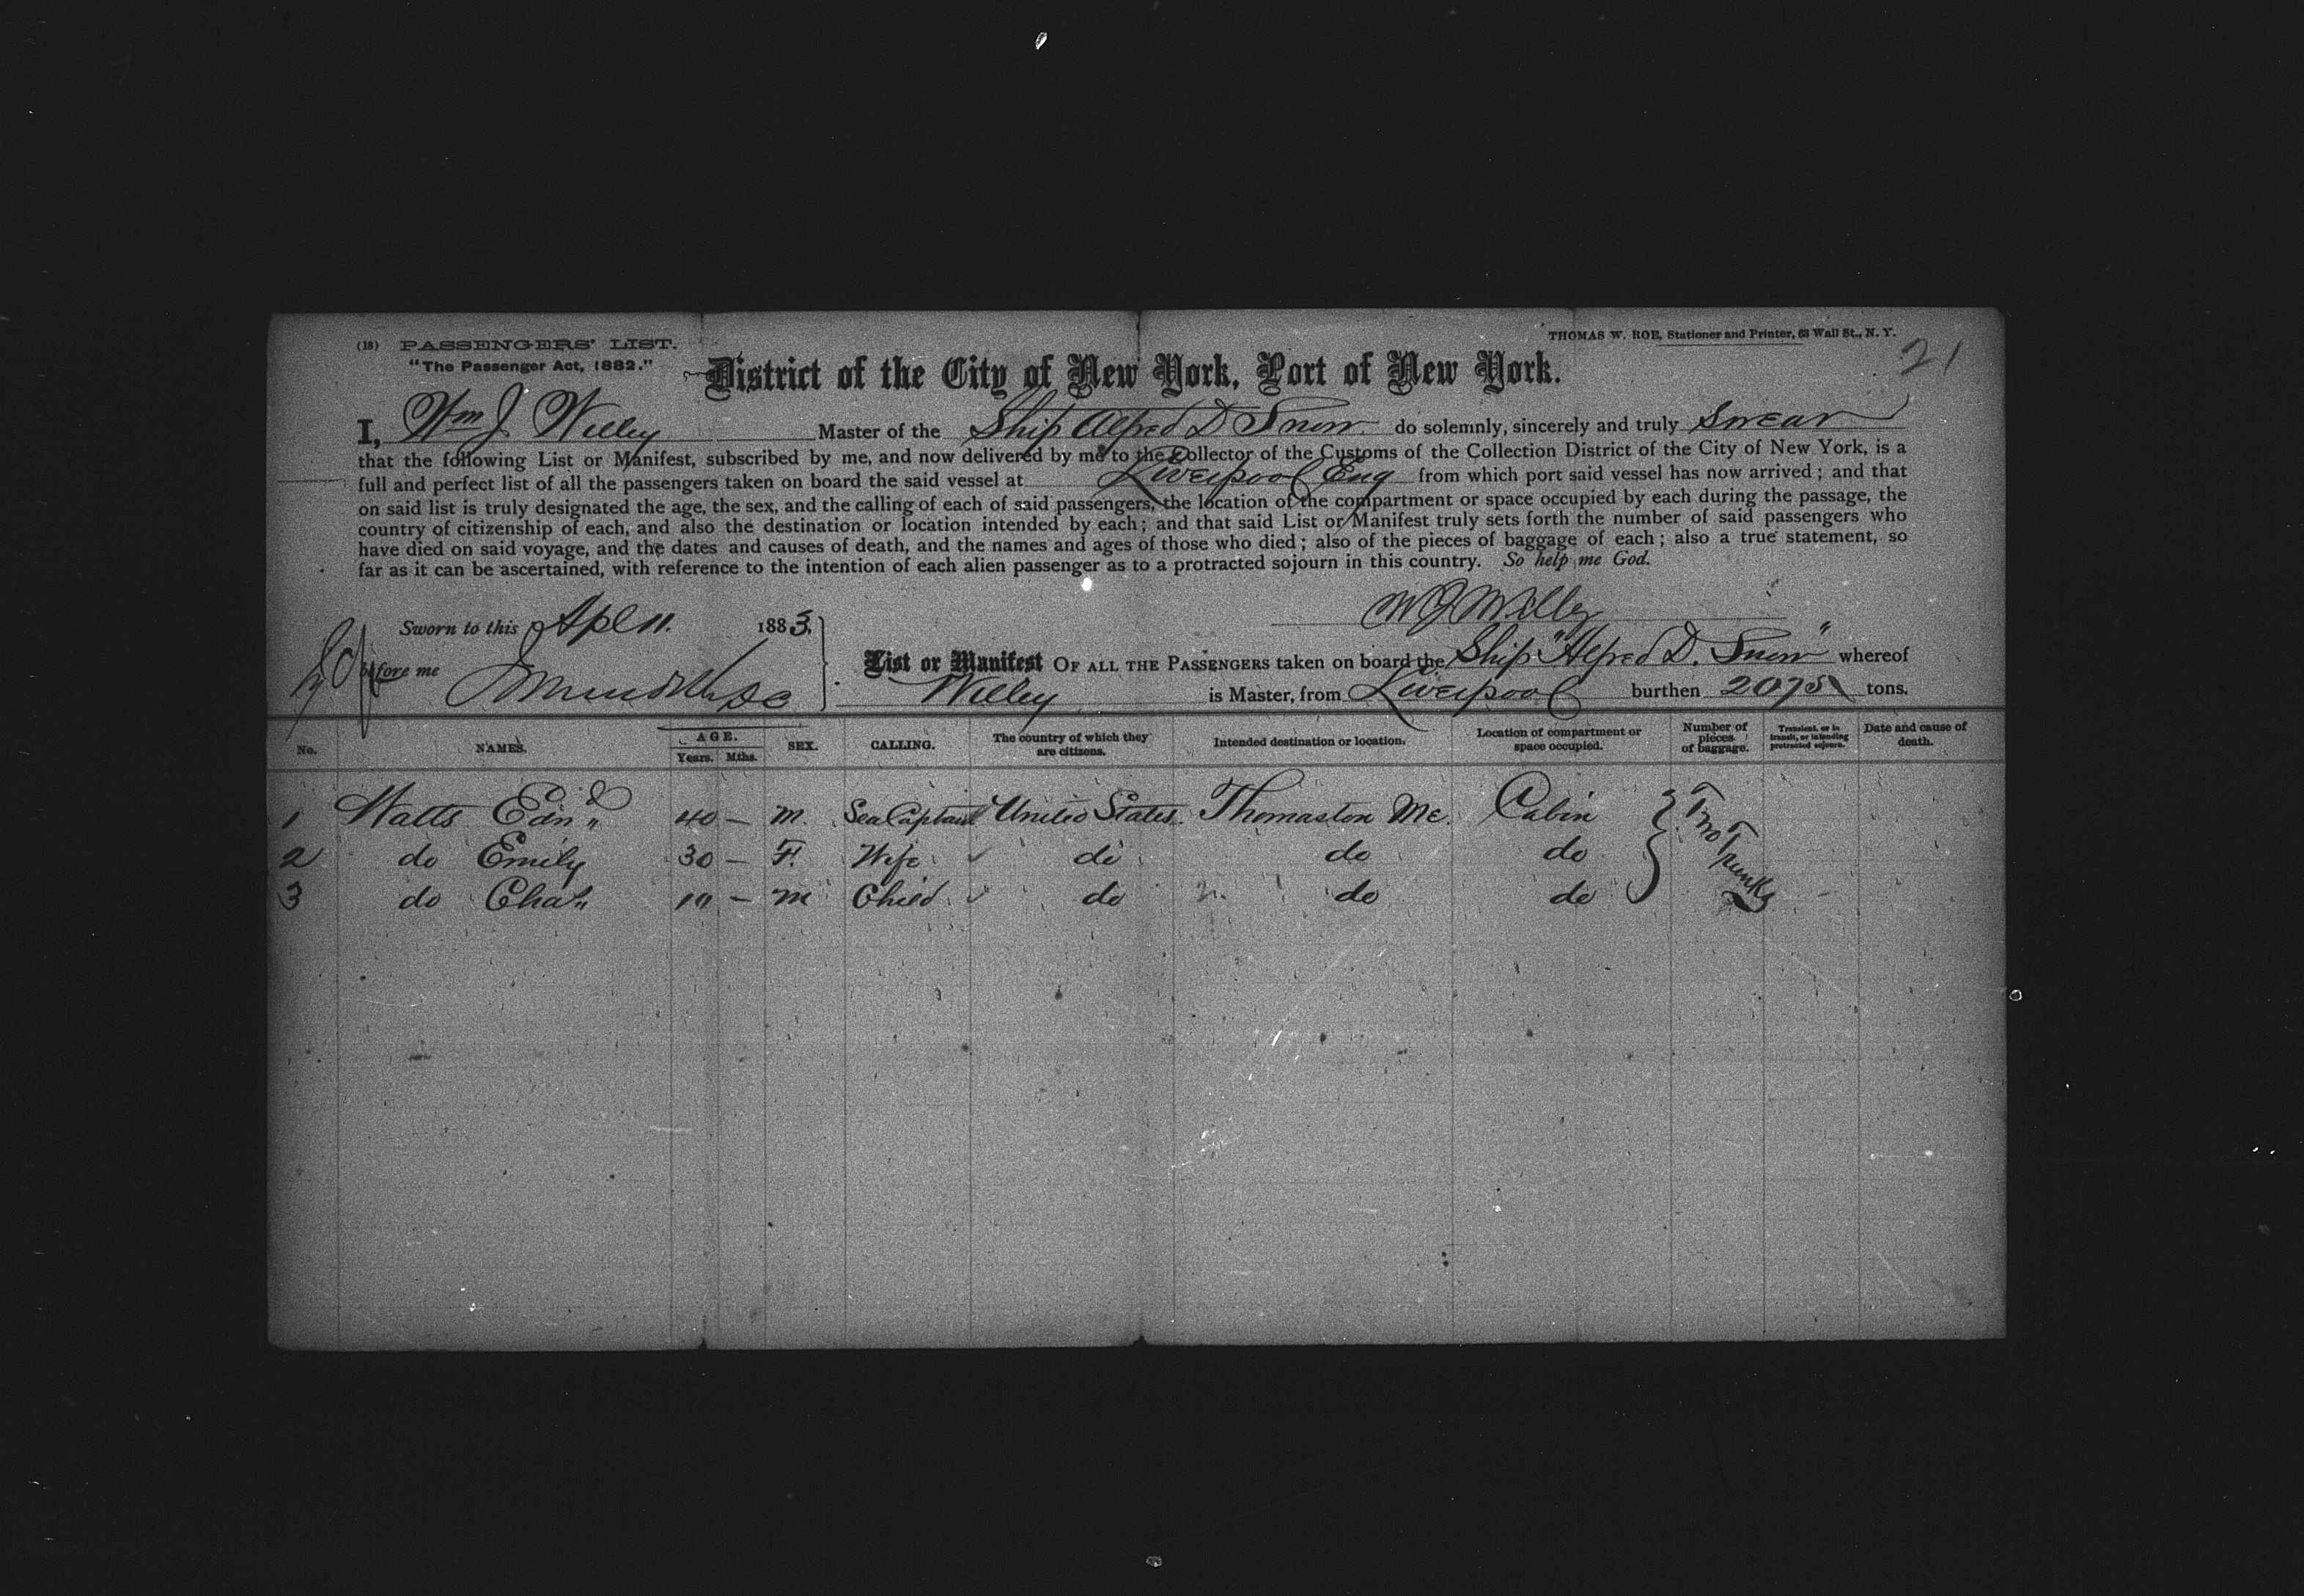 (18) PASSENGERS' LIST.
THOMAS W. ROE, Stationer and Printer, 63 Wall St., N. Y.
21
"The Passenger Act, 1882."
District of the City of New York, Port of New York.
I, Wm J. Willey Master of the Ship Alfred D Snow do solemnly, sincerely and truly Swear
that the following List or Manifest, subscribed by me, and now delivered by me to the Collector of the Customs of the Collection District of the City of New York, is a
full and perfect list of all the passengers taken on board the said vessel at Liverpool Eng from which port said vessel has now arrived; and that
on said list is truly designated the age, the sex, and the calling of each of said passengers, the location of the compartment or space occupied by each during the passage, the
country of citizenship of each, and also the destination or location intended by each; and that said List or Manifest truly sets forth the number of said passengers who
have died on said voyage, and the dates and causes of death, and the names and ages of those who died; also of the pieces of baggage of each; also a true statement, so
far as it can be ascertained, with reference to the intention of each alien passenger as to a protracted sojourn in this country. So help me God.
W J Willey
Sworn to this Apl 11. 1883.
before me
List or Manifest OF ALL THE PASSENGERS taken on board the Ship "Alfred D. Snow" whereof
Willey is Master, from Liverpool burthen 2075 tons.
No. NAMES. AGE. Years. Mths. SEX. CALLING. The country of which they are citizens. Intended destination or location. Location of compartment or space occupied. Number of pieces of baggage. Transient, or in transit, or intending protracted sojourn. Date and cause of death.
1 Watts Edwd 40 — M. Sea Captain United States. Thomaston Me. Cabin } Two Trunks
2 do Emily 30 — F. Wife do do do
3 do Chas 10 — M Child do do do 2